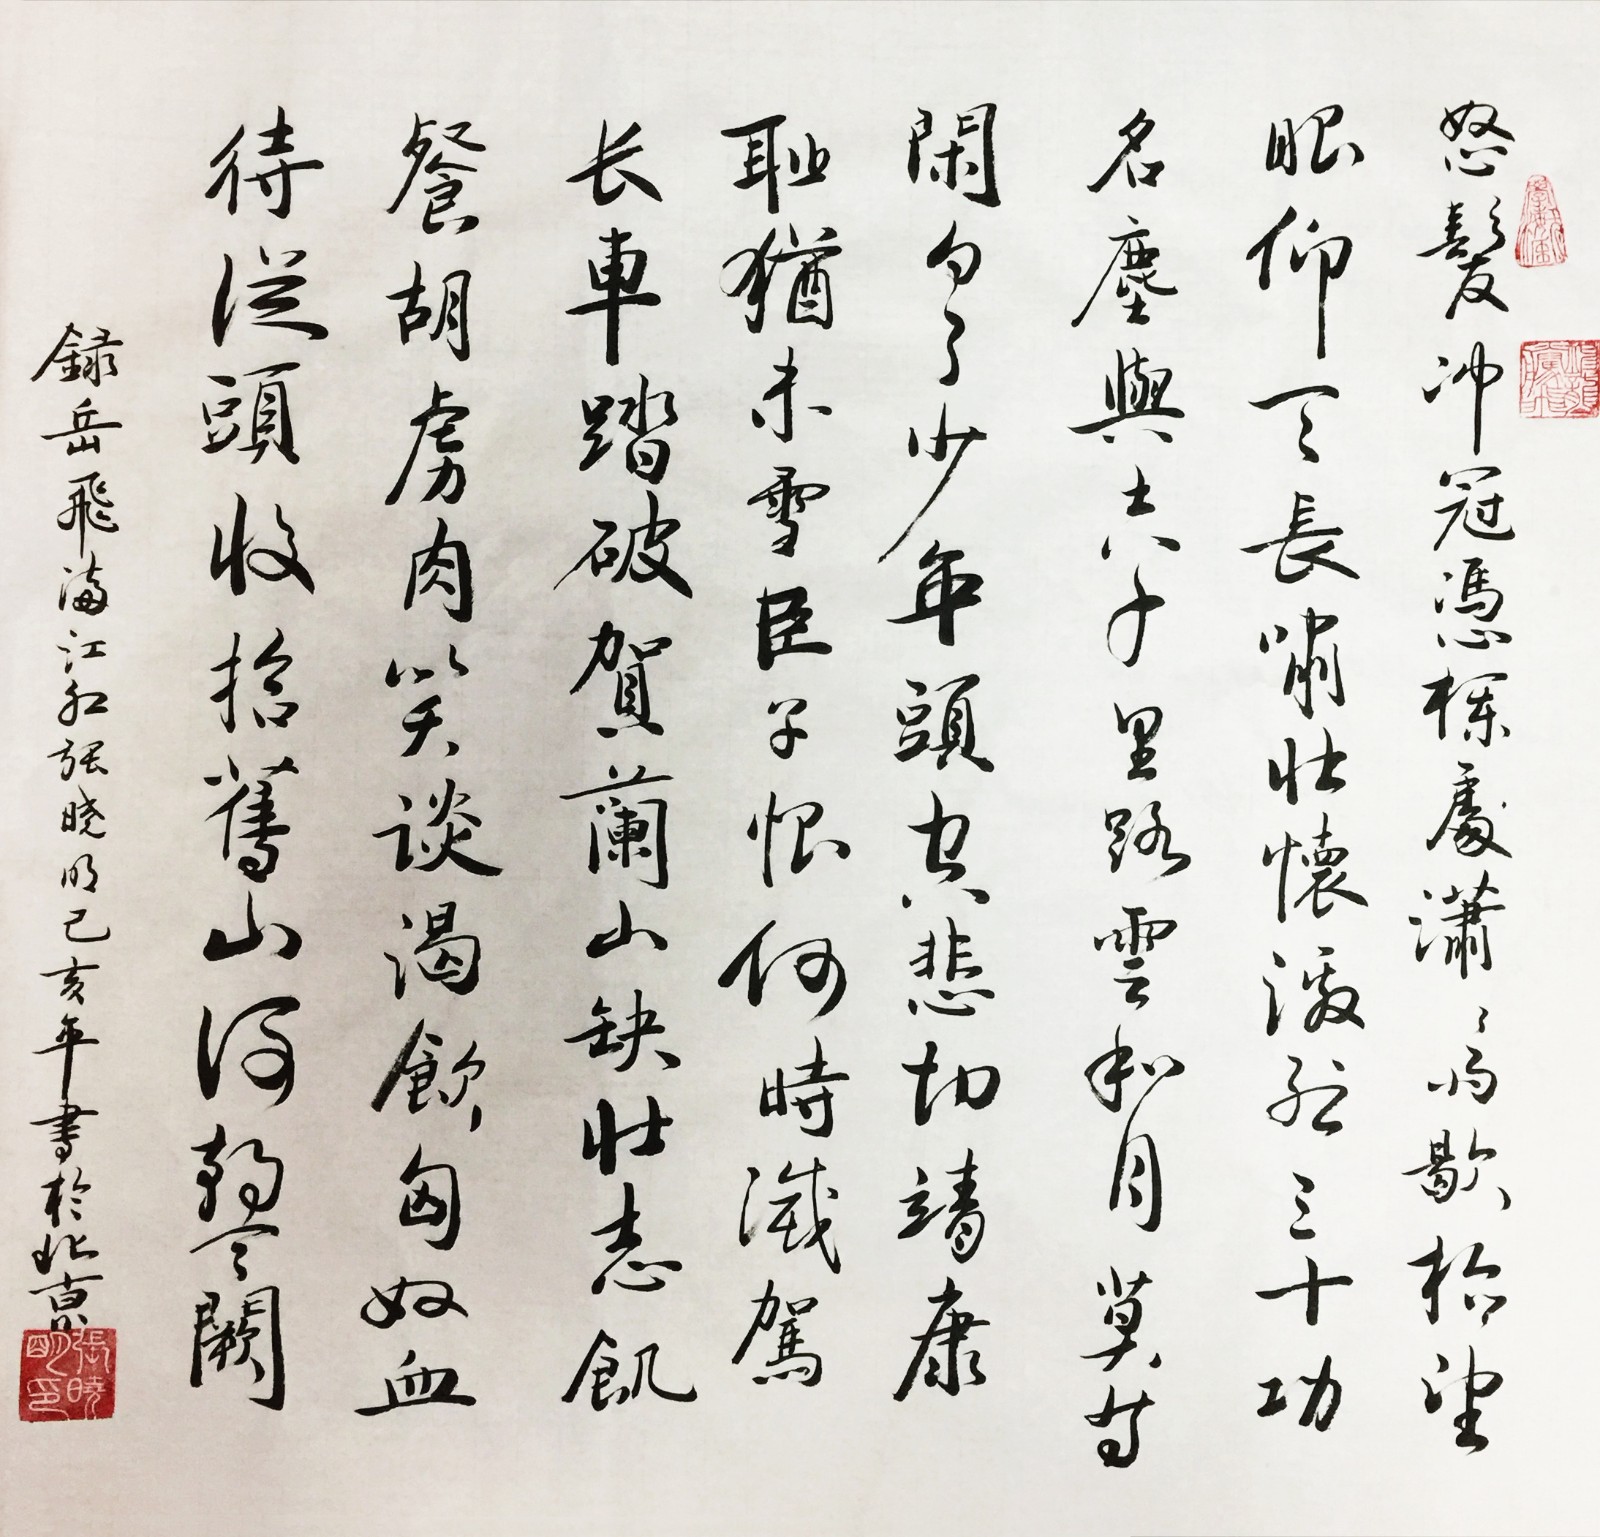 怒髮冲冠憑欄處瀟〻雨歇抬望
眼仰天長嘯壯懷激烈三十功
名塵與土八千里路雲和月莫等
閑白了少年頭空悲切靖康
耻猶未雪臣子恨何時滅駕
长車踏破賀蘭山缺壯志飢
餐胡虜肉笑談渴飲匈奴血
待從頭收拾舊山河朝天闕
録岳飛滿江紅張曉明己亥年書於北京
張曉明印